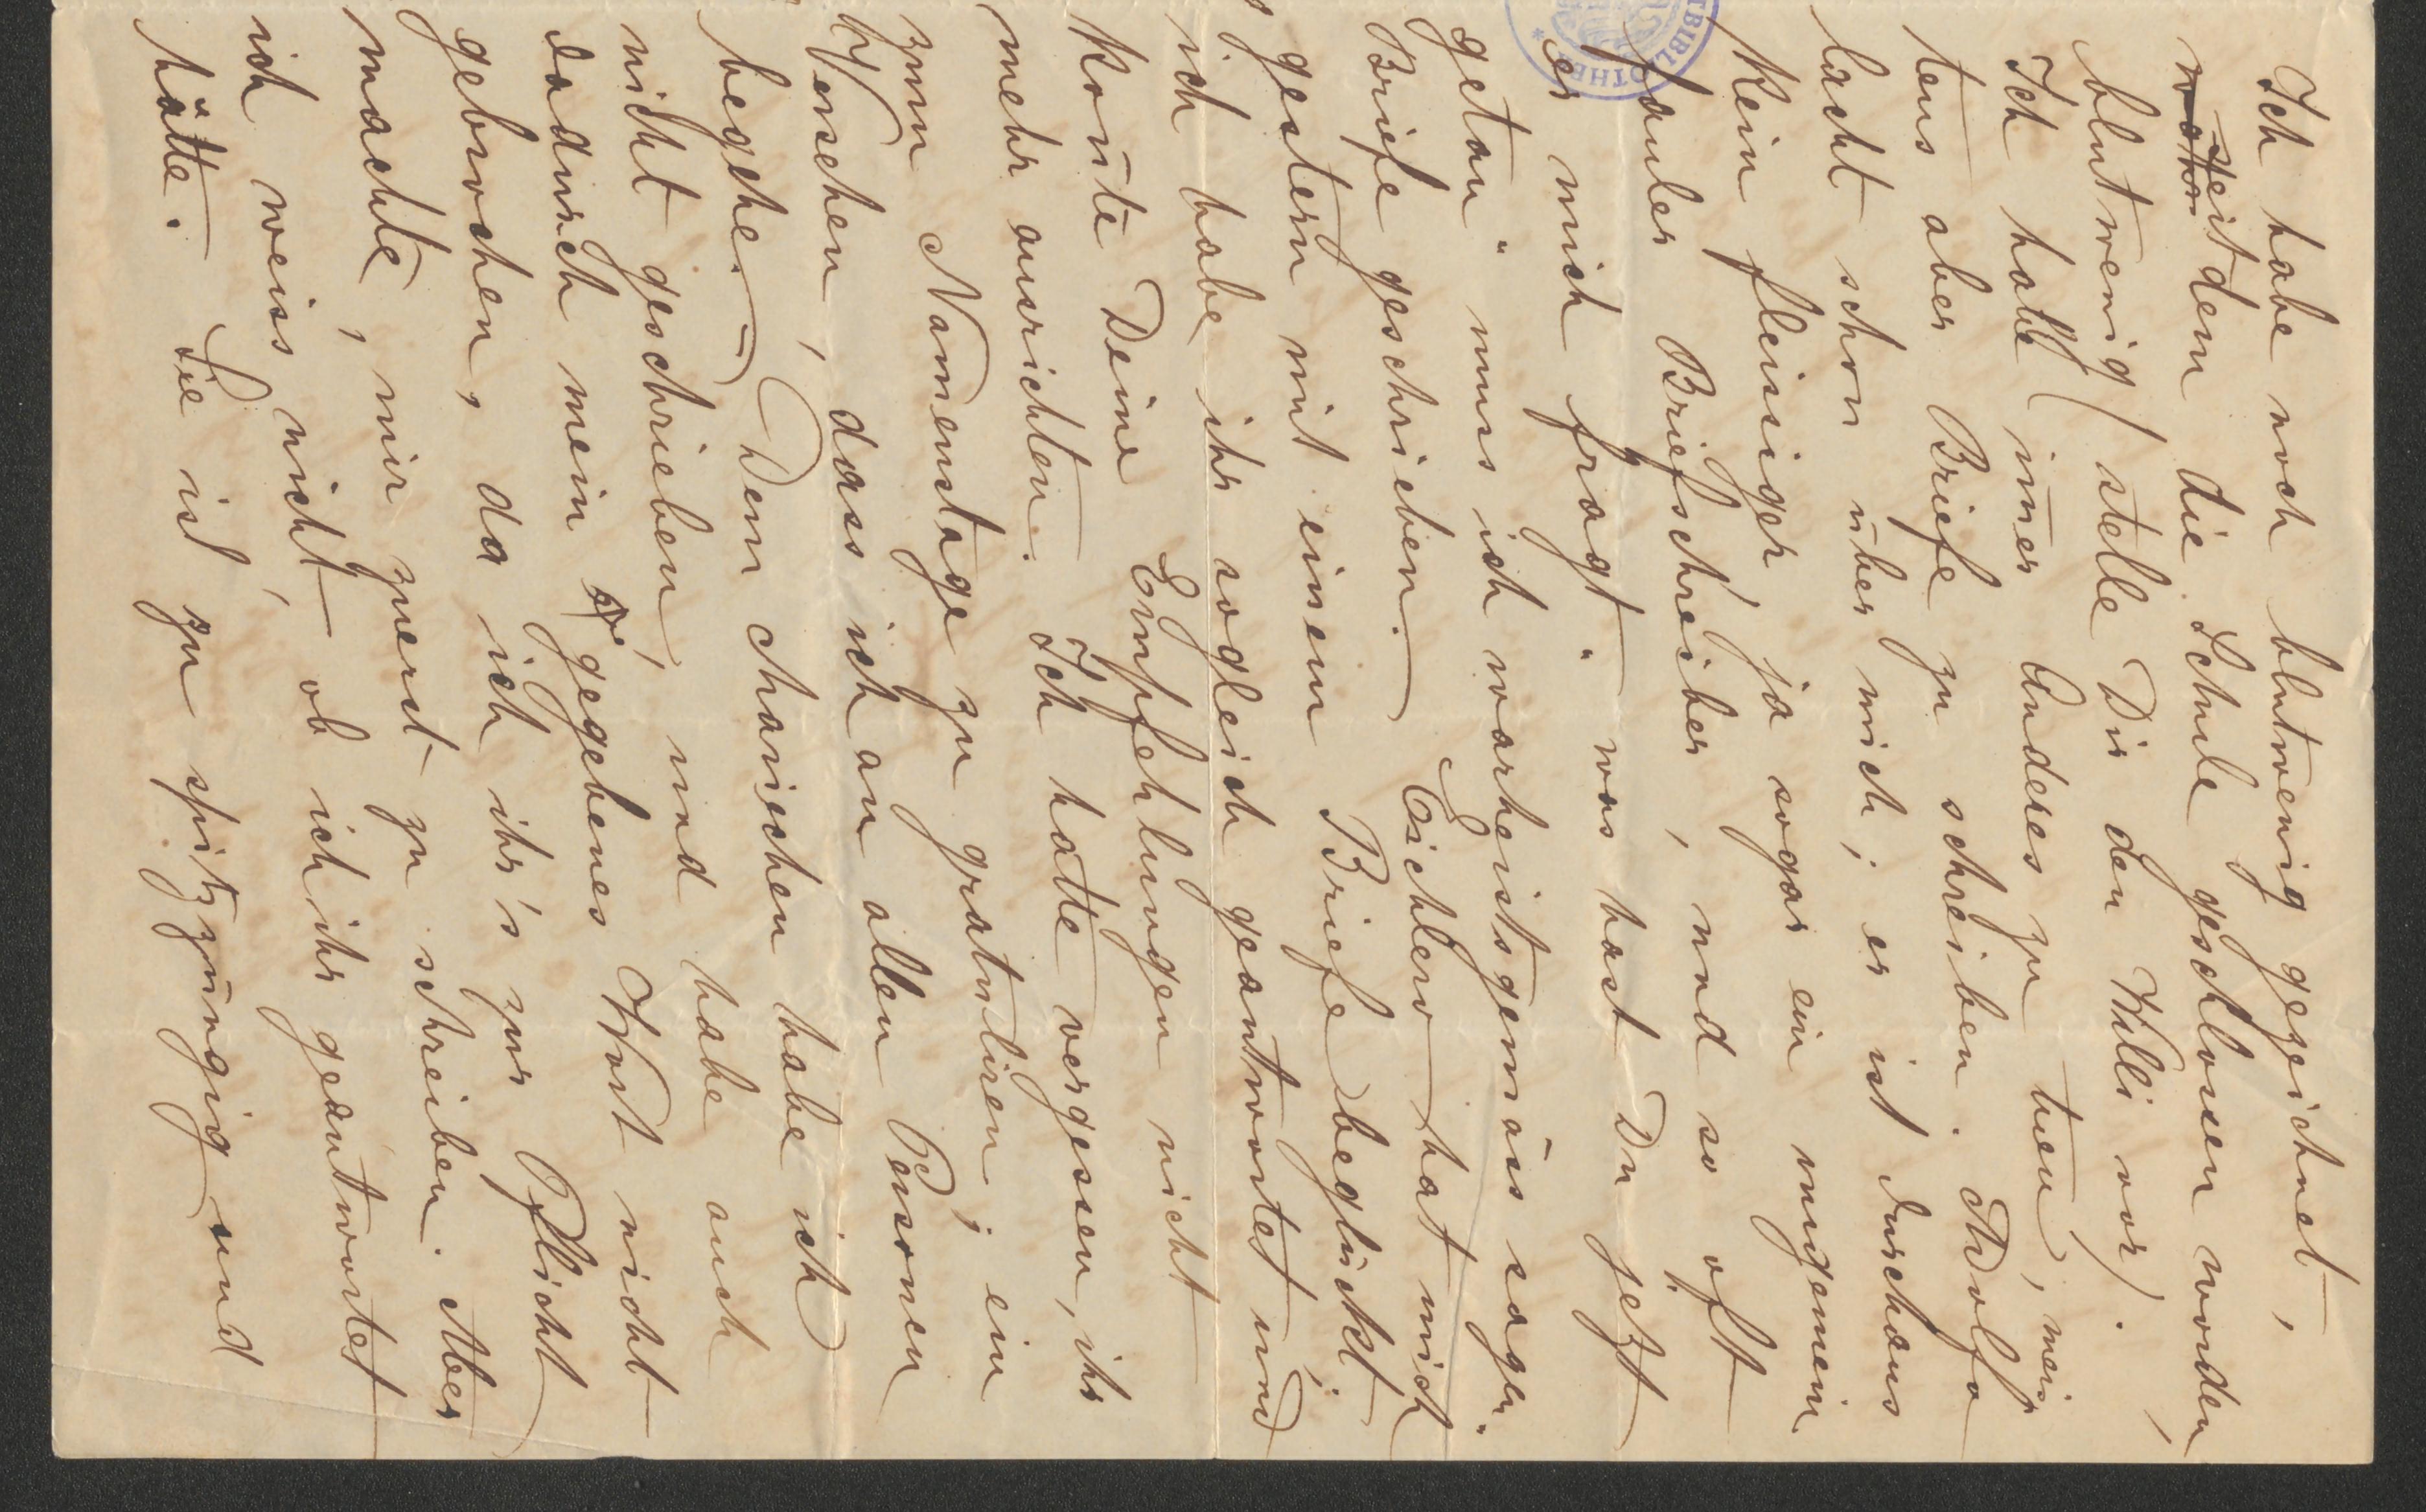 Ich habe noch blutwenig gezeichnet,
watten seitdem die Schule geschlossen worden,
blutwenig (stelle Dir den Willi vor).
Ich hatte im̄er Anderes zu tuen, meis
tens aber Briefe zu schreiben. Adolfo
lacht schon über mich; er ist durchaus
kein fleissiger, ja sogar ein ungemein
fauler Briefschreiber, und so oft
er mich fragt „was hast Du jezt
getan“ muss ich warheitsgemäss sagen „
Briefe geschrieben. — Eichlero hat mich
gestern mit einem Briefe beglückt.
ich habe ihr sogleich geantwortet und
kon̄te Deine Empfehlungen nicht
mehr ausrichten. Ich hatte vergessen, ihr
zum Namenstage zu gratuliren; ein
Versehen, dass ich an allen Personen
begehe. — Dem charischen habe ich
nicht geschrieben, und habe auch
dadurch mein gegebenes Wort nicht
gebrochen, da ich ihr's zur Pflicht
machte, mir zuerst zu schreiben. Aber
ich weiss nicht, ob ich ihr geantwortet
hätte. Sie ist zu spitzzüngig und
TBIBLIOTHE